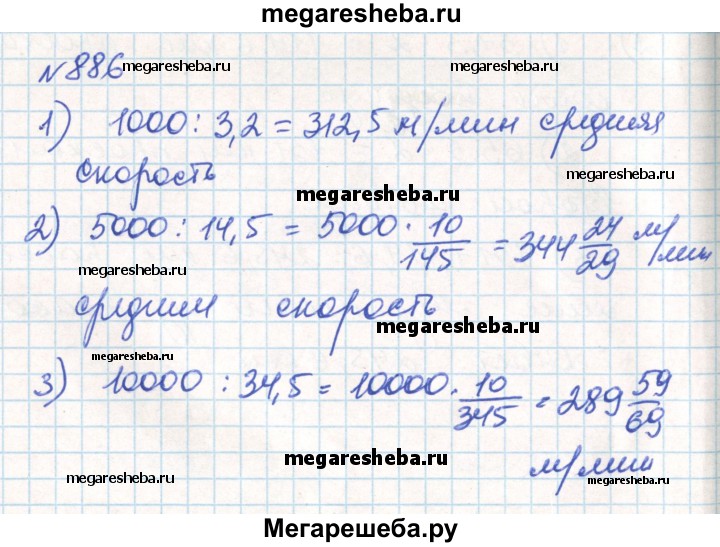 megaresheba.ru
№886 megaresheba.ru megaresheba.ru
1) 1000 : 3,2 = 312,5 м/мин средняя
скорость megaresheba.ru megaresheba.ru
2) 5000 : 14,5 = 5000 · 10/145 = 344 24/29 м/мин
megaresheba.ru
средняя скорость megaresheba.ru
megaresheba.ru
3) 10000 : 34,5 = 10000 · 10/345 = 289 59/69
м/мин
megaresheba.ru megaresheba.ru megaresheba.ru
Мегарешеба.ру